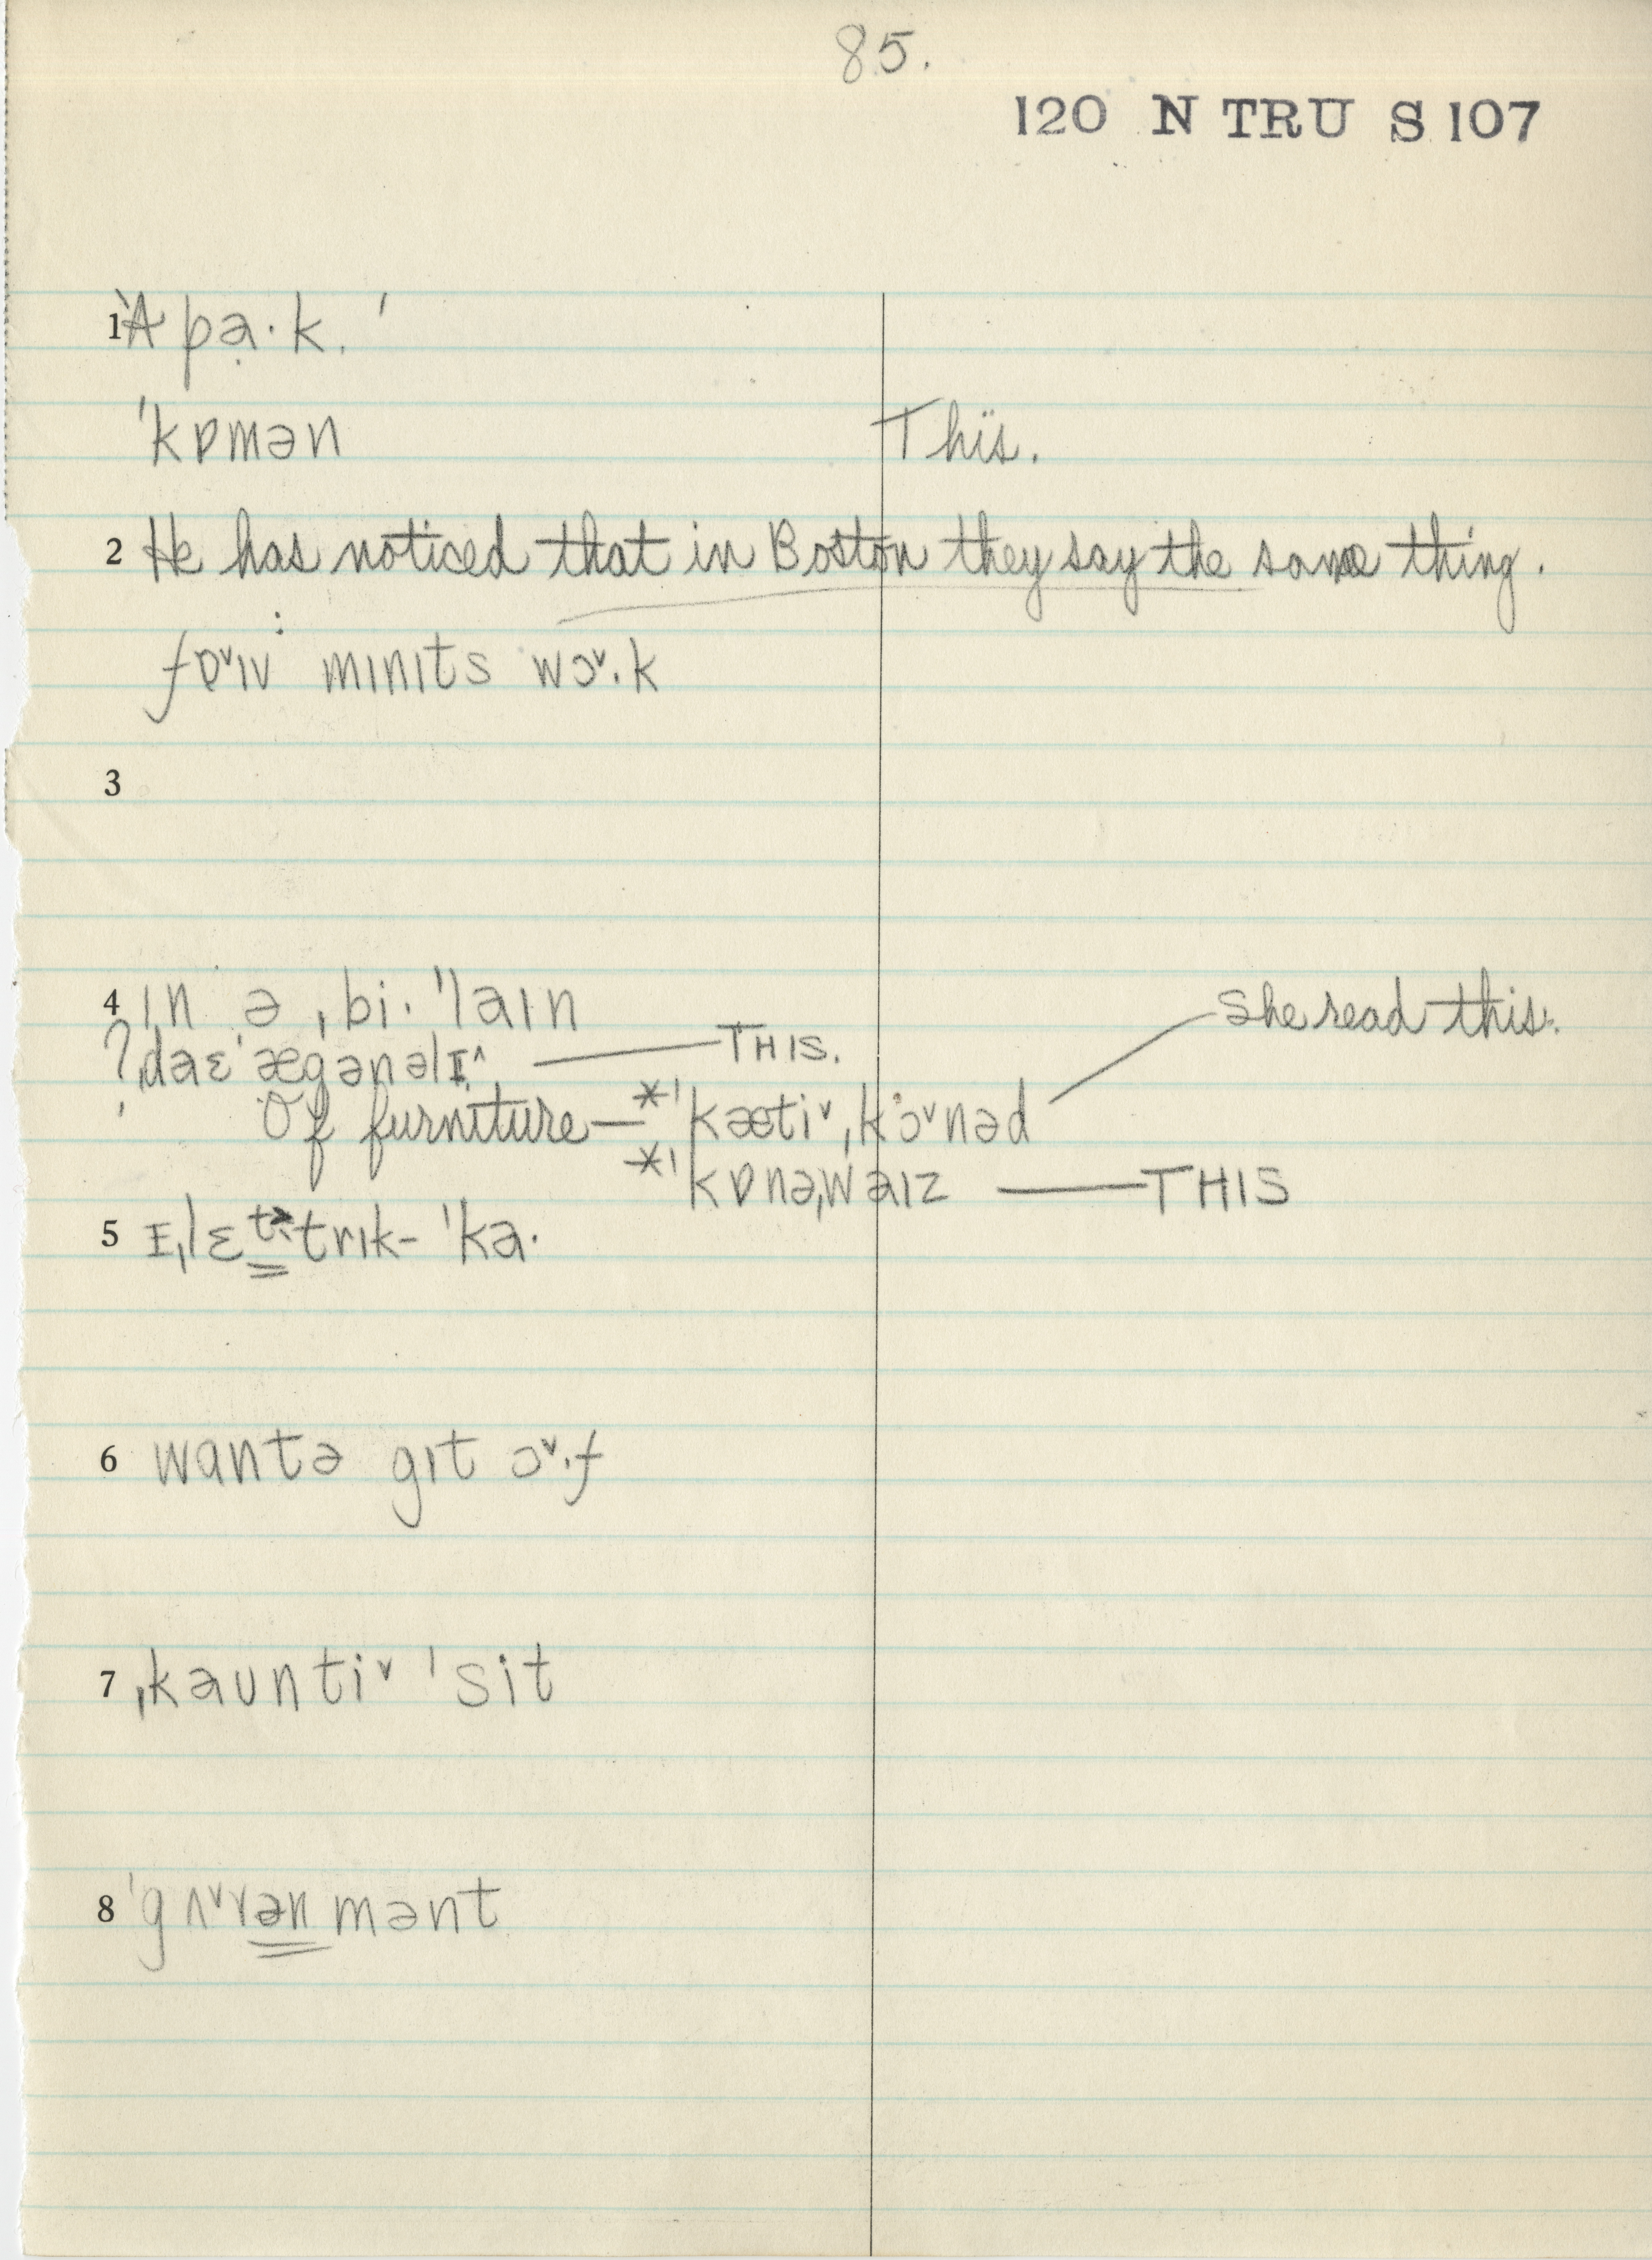 85.
120 N TRU S 107
1 ə pạ·k.
ˈkɒmən This.
2 He has noticed that in Boston they say the same thing.
fɒ˅ɪv mɪnɪts wɔ˅·k
3
4 ɪn ə ˌbi·ˈlaɪn
? ˌdaɛˈægənəlɪ^ — THIS.
Of furniture — *ˈkæti˅ˌkɔ˅nəd She read this.
*ˈkɒnəˌwaɪz — THIS
5 ɪˌlɛttrɪk-ˈka·
6 wantə gɪt ɔ˅·f
7 ˌkaunti˅ ˈsit
8 ˈgʌ˅vənmənt